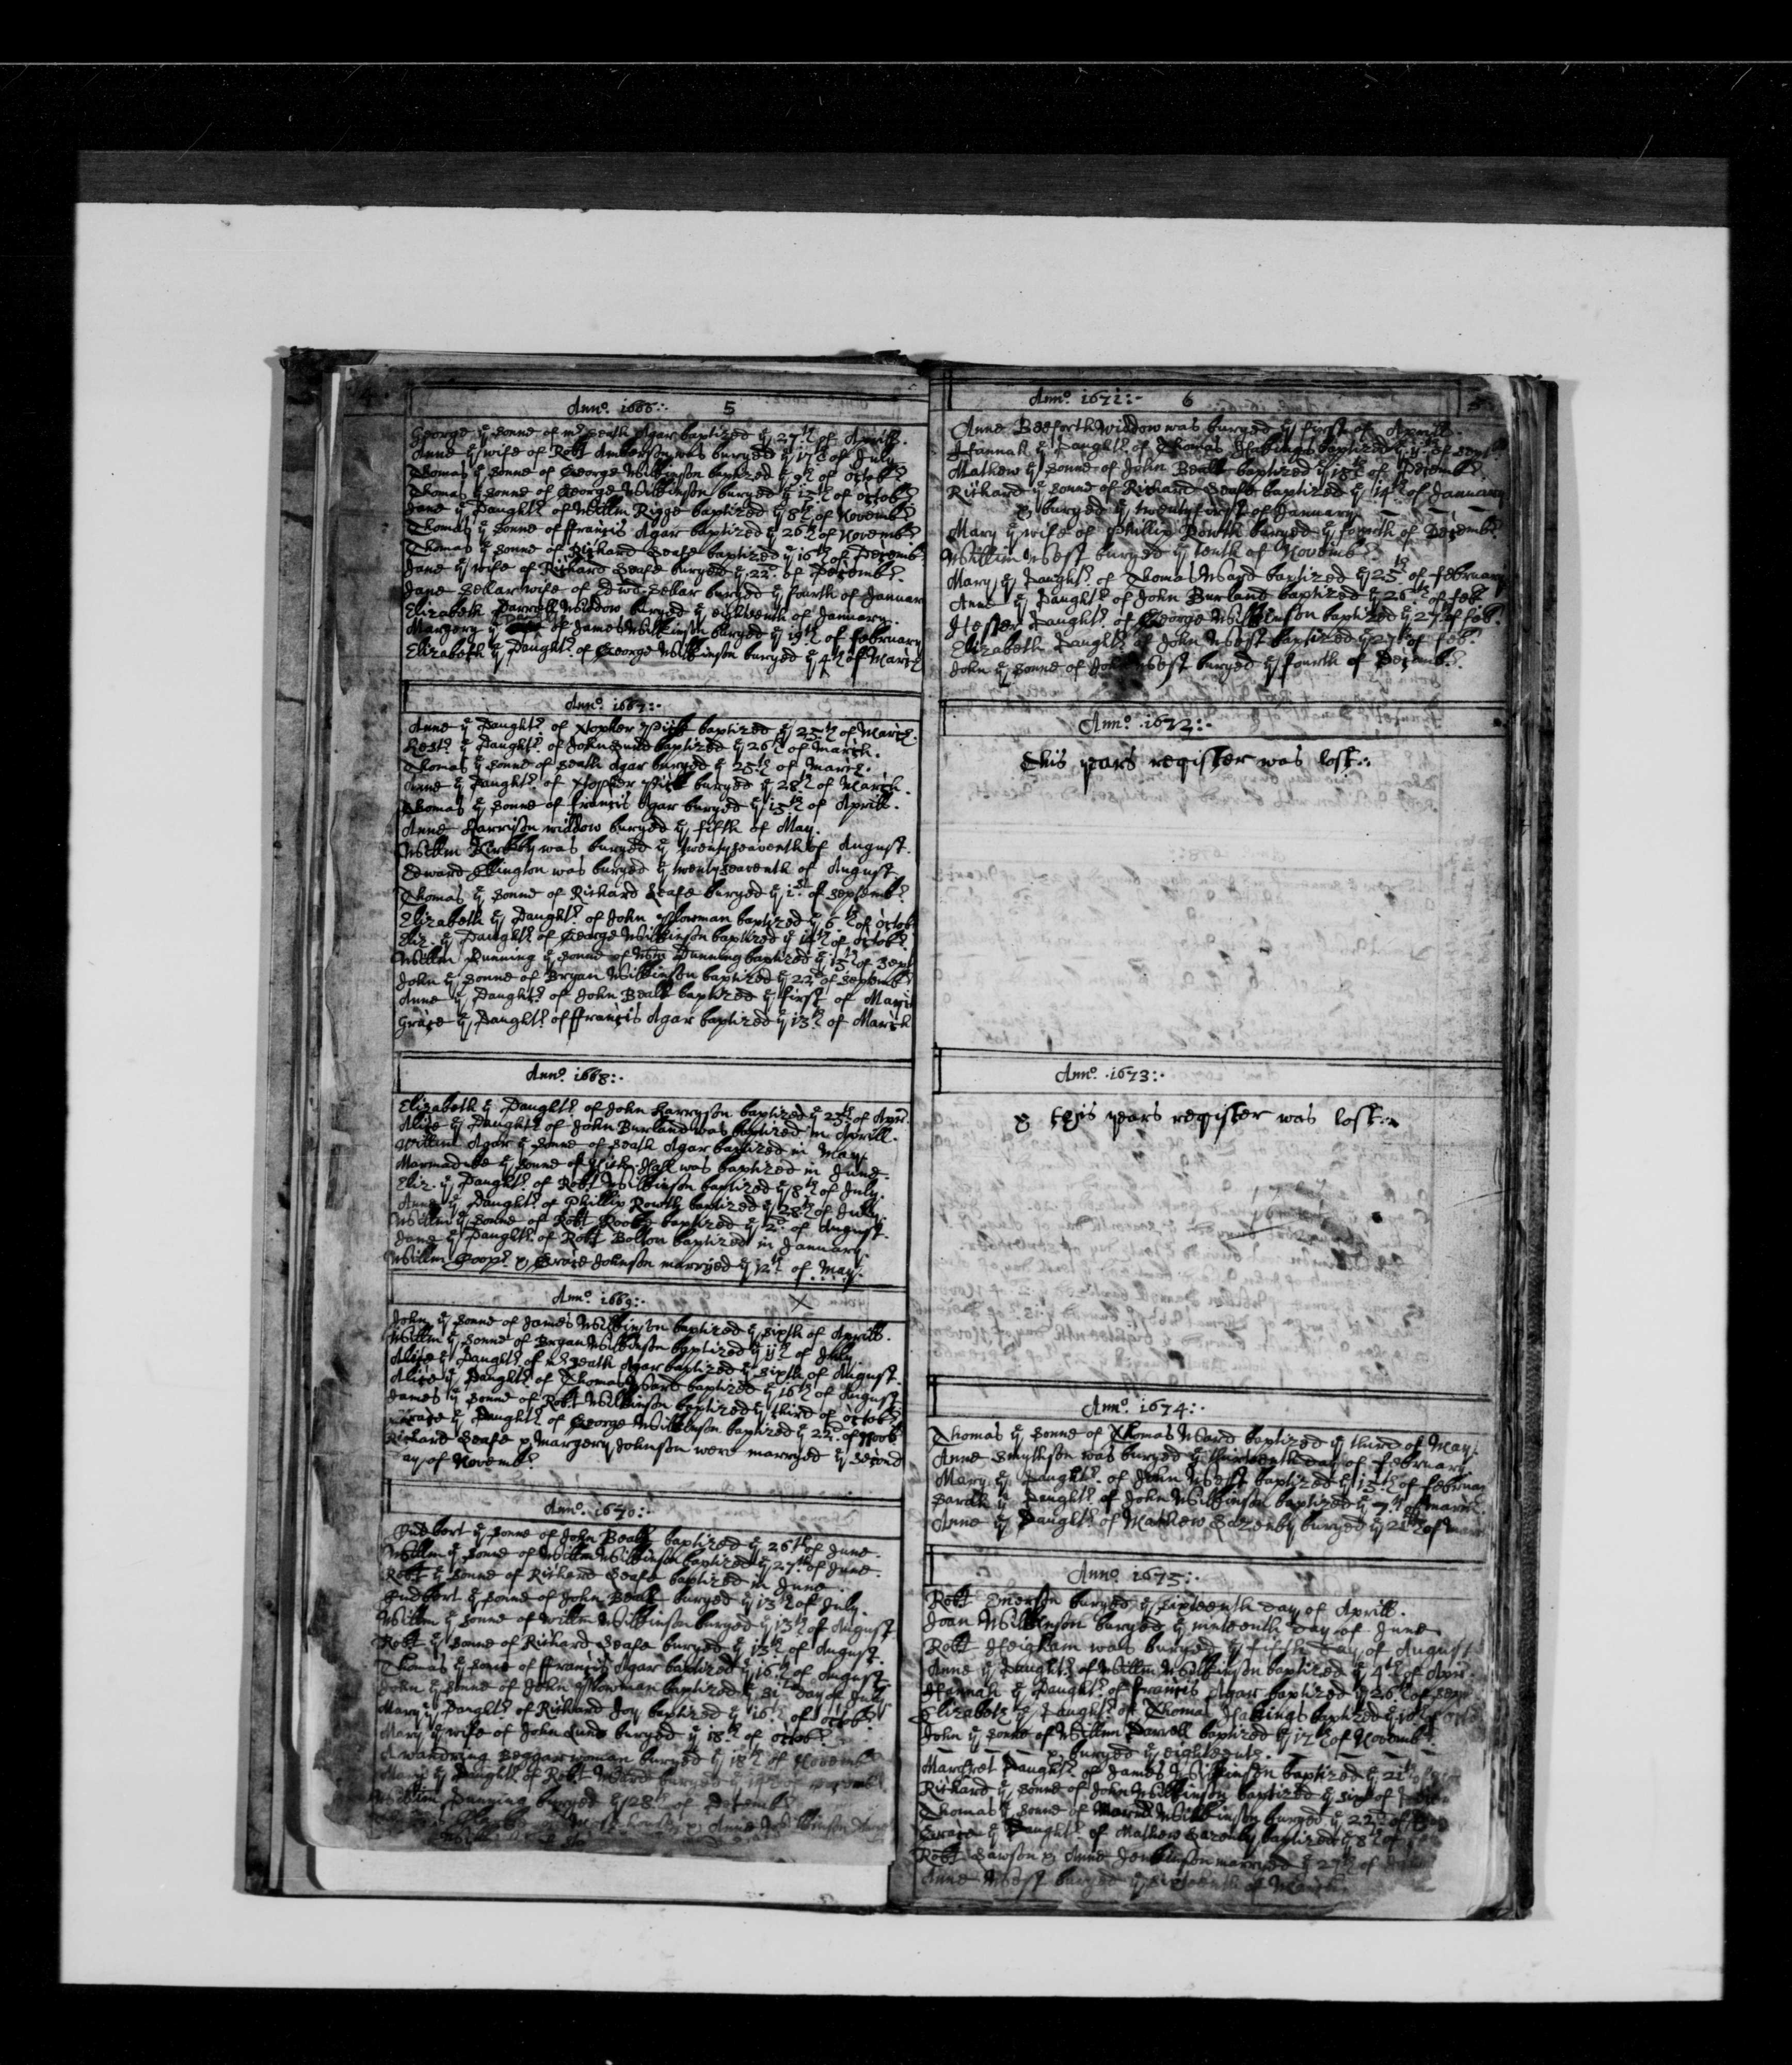 Anno. 1666:. 5
George ye sonne of mr Seath Agar baptized ye 27th of Aprill.
Anne ye wife of Robt was buryed ye 17th of July
Thomas ye sonne of George Wilkinson baptized ye 9th of octobr
Thomas ye sonne of George Wilkinson buryed ye 13th of octobr
Jane ye Daughtr of Willm Rigge baptized ye 8th of Novembr
Thomas ye sonne of ffrancis Agar baptized ye 26th of Novembr
Thomas ye sonne of Richard Seafe baptized ye 16th of Decemb
Jane ye wife of Richard Seafe buryed ye 22d of Decembr.
Jane Sellar wife of Edwd Sellar buryed ye fourth of January
Elizabeth Darrell Widdow buryed ye eighteenth of January.
Margery ye of James Wilkinson buryed ye 19th of february
Elizabeth ye Daughtr of George Wilkinson buryed ye 4th of March
Anno. 1667:.
Anne ye Daughtr of Xtopher baptized ye 25th of March.
Hestr ye Daughtr of John Lund baptized ye 26th of March.
Thomas ye sonne of Seath Agar buryed ye 25th of March.
Anne ye Daughtr of Xtopher buryed ye 28th of March.
Thomas ye sonne of francis Agar buryed ye 15th of Aprill.
Anne Harrison widdow buryed ye fifth of May.
Willm Kirkby was buryed ye twentyseaventh of August.
Edward Ellington was buryed ye twentyseaventh of August.
Thomas ye sonne of Richard Seafe buryed ye 1st of Septembr
Elizabeth ye Daughtr of John Plowman baptized ye 6th of octob
Eliz. ye Daughtr of George Wilkinson baptized ye 14th of octobr
Willm Dunning ye sonne of Wm Dunning baptized ye 15th of Sept
John ye sonne of Bryan Wilkinson baptized ye 22d of Septembr
Anne ye Daughtr of John Beall baptized ye first of March
Grace ye Daughtr of ffrancis Agar baptized ye 13th of March
Anno. 1668:.
Elizabeth ye Daughtr of John Harryson baptized ye 25th of Apr.
Alice ye Daughtr of John Burland was baptized in Aprill.
Willm Agar ye sonne of Seath Agar baptized in May.
Marmaduke ye sonne of Hall was baptized in June.
Eliz. ye Daughtr of Robt Wilkinson baptized ye 8th of July.
Anne ye Daughtr of Phillip Rowth baptized ye 28th of July.
Willm ye sonne of Robt Rooky baptized ye 2d of August.
Jane ye Daughtr of Robt Bolton baptized in January.
Willm Coopr & Grace Johnson marryed ye 12th of May.
Anno. 1669:. X
John ye sonne of James Wilkinson baptized ye sixth of Aprill.
Willm ye sonne of Bryan Wilkinson baptized ye 11th of July
Alice ye Daughtr of mr Seath Agar baptized ye sixth of August.
Alice ye Daughtr of Thomas Ward baptized ye 16th of August
James ye sonne of Robt Wilkinson baptized ye third of octobr
Grace ye Daughtr of George Wilkinson baptized ye 22d of Novb
Richard Seafe & Margery Johnson were marryed ye second
ay of Novembr
Anno. 1670:.
Cudbert ye sonne of John Beall baptized ye 26th of June.
Willm ye sonne of Willm Wilkinson baptized ye 27th of June.
Robt ye sonne of Richard Seafe baptized in June.
Cudbert ye sonne of John Beall buryed ye 13th of July.
Willm ye sonne of Willm Wilkinson buryed ye 13th of August
Robt ye sonne of Richard Seafe buryed ye 15th of August.
Thomas ye sonne of ffrancis Agar baptized ye 16th of August
John ye sonne of John Plowman baptized ye 31 Day of July
Mary ye Daughtr of Richard Joy baptized ye 16th of octobr
Mary ye wife of John Lund buryed ye 18th of octobr
A wandring Beggar woman buryed ye 18th of Novembr
Mary ye Daughtr of Robt Ward buryed ye
Willm Dunning buryed ye 28th of Decembr
& Anne Wilkinson
Anno. 1671:- 6
Anne Bedforth Widdow was buryed ye first of Aprill.
Hannah ye Daughtr of Thomas Hastings baptized ye of Septr
Mathew ye sonne of John Beall baptized ye 18th of Decembr
Richard ye sonne of Richard Seafe baptized ye 14th of January
& buryed ye twentyforst of January.
Mary ye wife of Phillip Rowth buryed ye fourth of Decembr.
Willm West buryed ye tenth of Novembr
Mary ye Daughtr of Thomas Ward baptized ye 25th of february
Anne ye Daughtr of John Burland baptized ye 26th of feb
Hester Daughtr of George Wilkinson baptized ye 27 of feb.
Elizabeth Daughtr of John West baptized ye 27th of feb.
John ye sonne of John West buryed ye fourth of Decembr.
Anno. 1672:-
this years register was lost:.
Anno. 1673:.
& this years register was lost:.
Anno. 1674:.
Thomas ye sonne of Thomas Ward baptized ye third of May.
Anne Smythson was buryed ye thirteenth day of february
Mary ye Daughtr of John West baptized ye 15th of februar
Sarah ye Daughtr of John Wilkinson baptized ye 7th of March.
Anne ye Daughtr of Mathew Sazenby buryed ye 21th of Mar
Anno. 1675:.
Robt Emerson buryed ye sixteenth Day of Aprill.
Joan Wilkinson buryed ye ninteenth Day of June
Robt Heigham was buryed ye fifth Day of August
Anne ye Daughtr of Willm Wilkinson baptized ye 4th of Apr.
Hannah ye Daughtr of francis Agar baptized ye 26th of Sept
Elizabeth ye Daughtr of Thomas Hastings baptized ye 10th of
John ye sonne of Willm Darrell baptized ye 17th of Novembr.
& buryed ye eighteenth.
Margret Daughtr of James Wilkinson baptized ye 21th
Richard ye sonne of John Wilkinson baptized ye six of
Thomas ye sonne of Wilkinson buryed ye 22d of
Grace ye Daughtr of Mathew Sazenby baptized ye 8th of
Robt Lawson & Anne Jenkinson marryed ye 27th of
Anne West buryed ye sixteenth of March